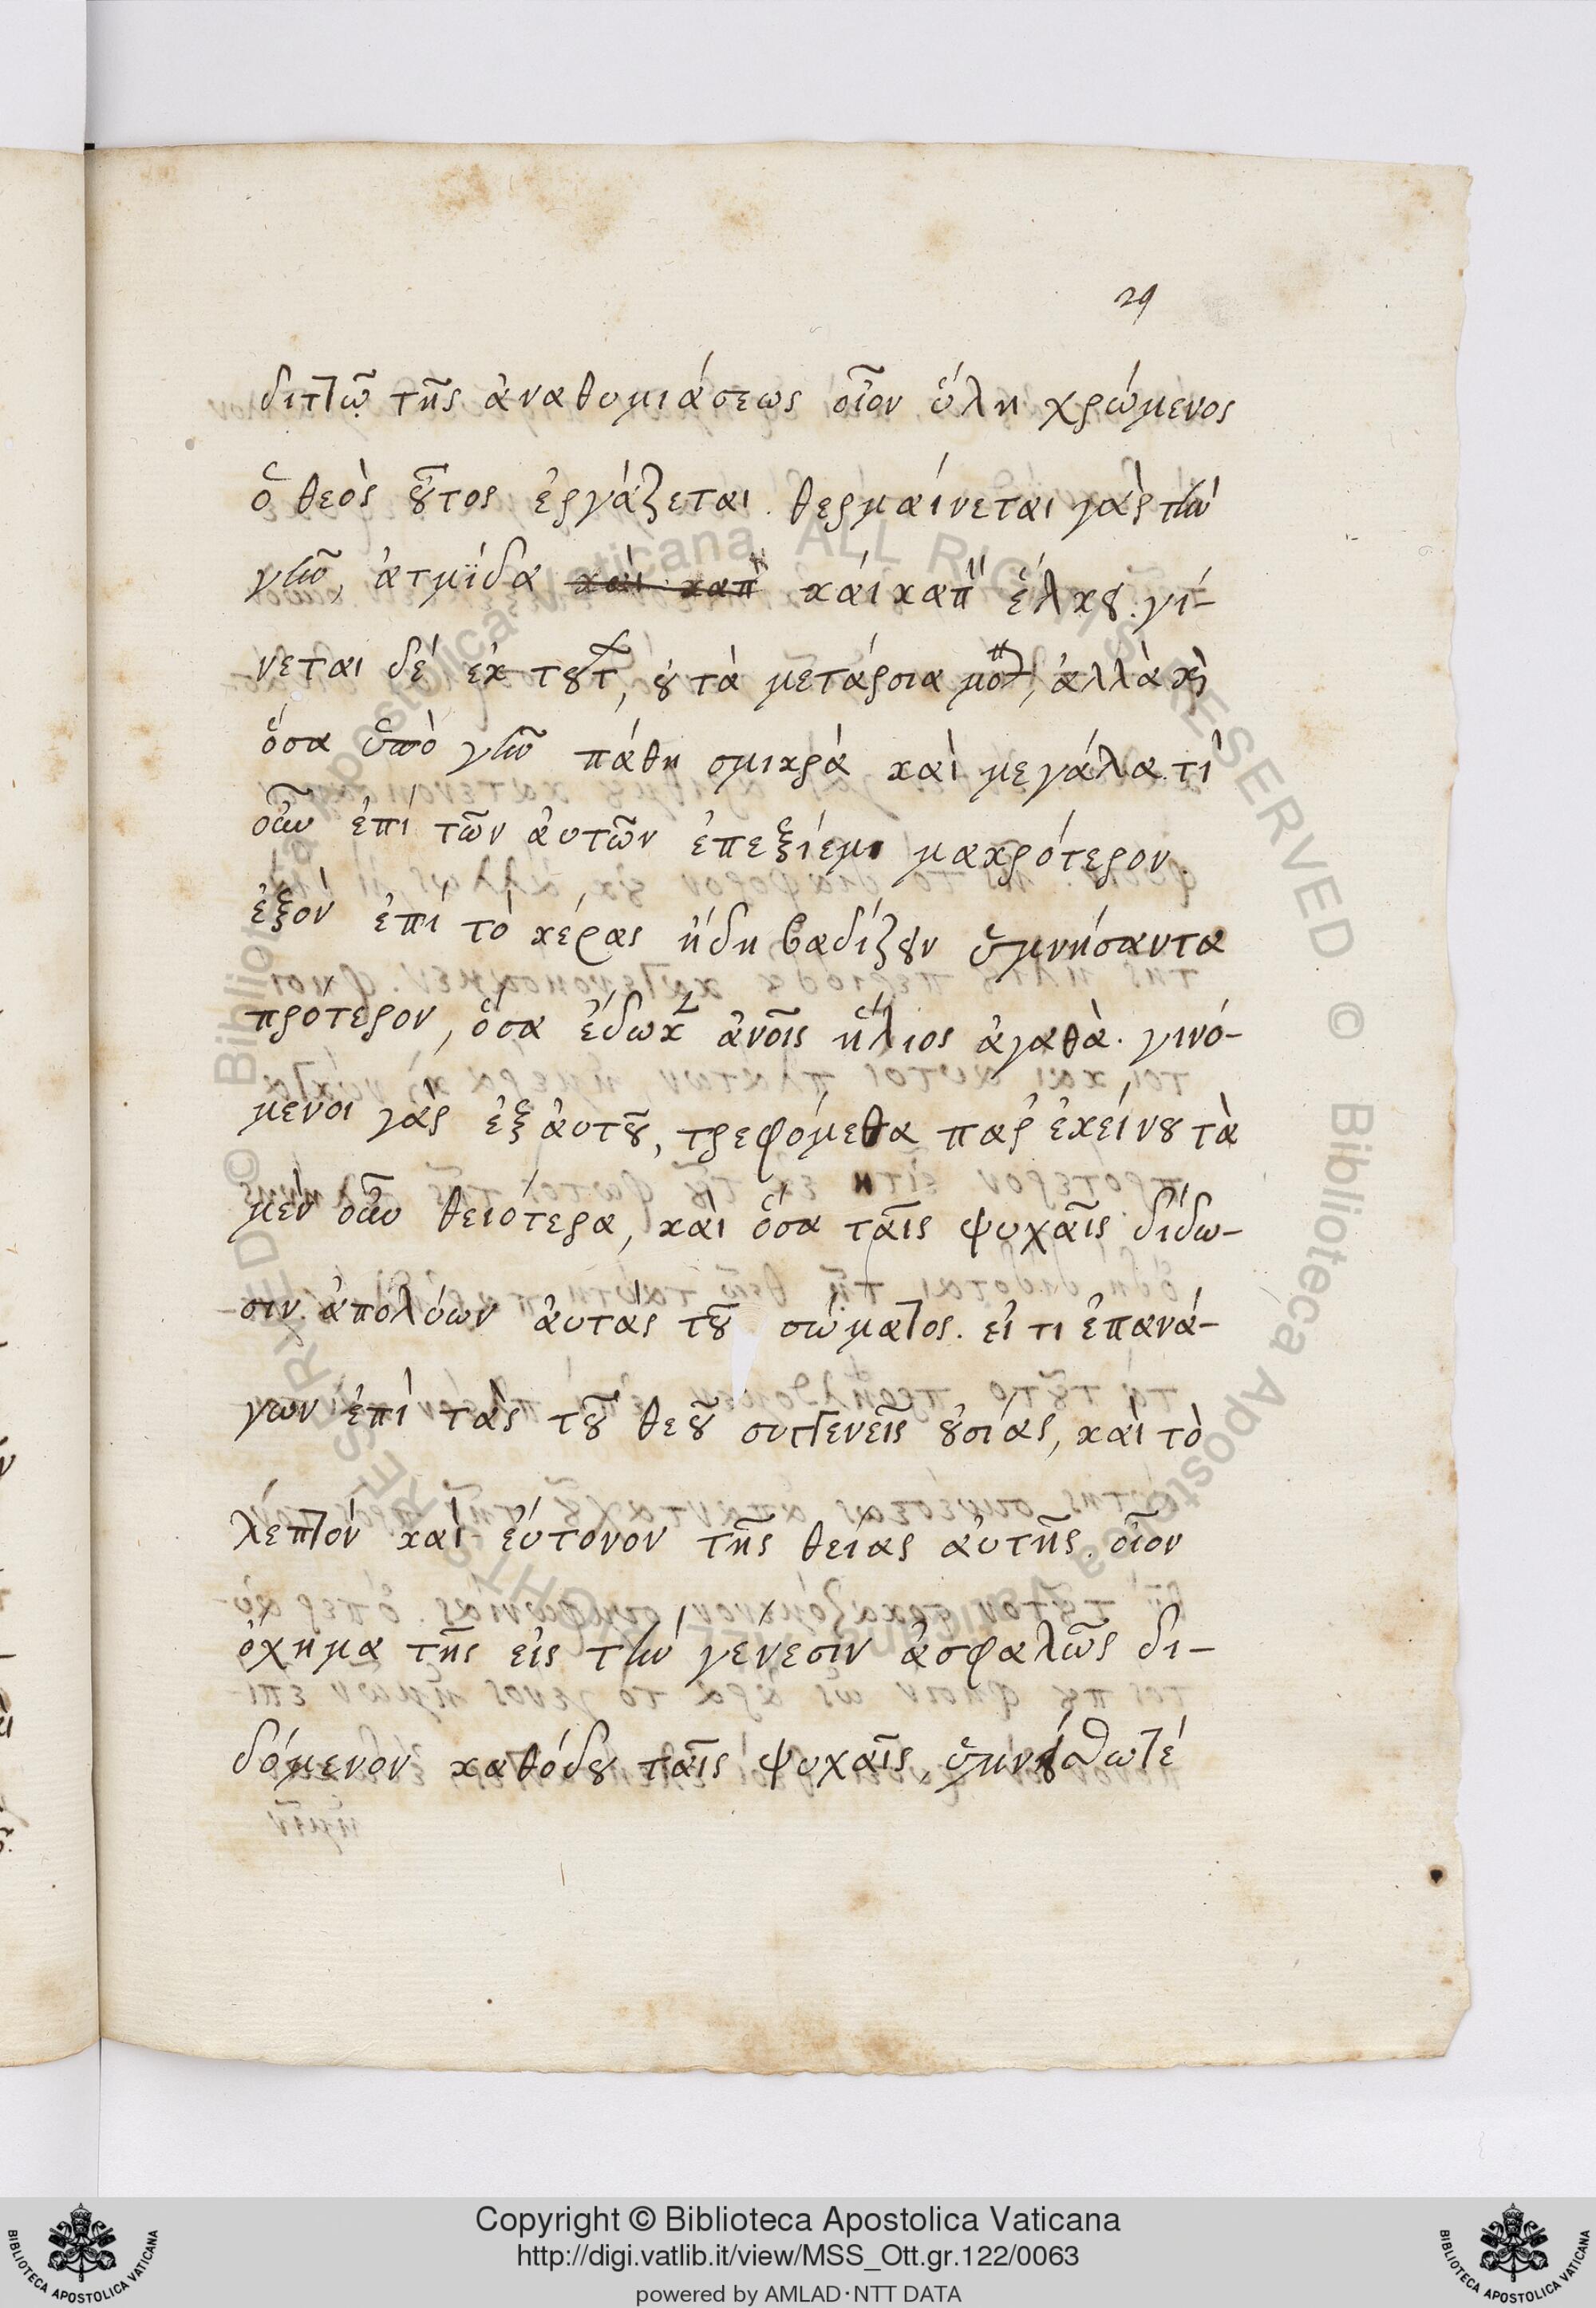 29
διττῷ τῆς ἀναθυμιάσεως οἷον ὕλη χρώμενος
ὁ θεὸς οὗτος ἐργάζεται. θερμαίνεται γὰρ τὴν
γῆν, ἀτμίδα καὶ καπ καὶ καπ ἕλκου. γί-
νεται δέ ἐκ τουτ, οὐ τὰ μετάρσια μο, ἀλλὰ καὶ
ὅσα ὑπὸ γῆν πάθη σμικρὰ καὶ μεγάλα. τί
οὖν ἐπὶ τῶν αὐτῶν ἐπεξίεμι μακρότερον.
ἐξὸν ἐπὶ τὸ κέρας ἤδη βαδίζουν ὑμνήσαντα
πρότερον, ὅσα ἔδωκ ἀνοῖς ἥλιος ἀγαθὰ. γινό-
μενοι γὰρ ἐξ αὐτοῦ, τρεφόμεθα παρ ἐκείνου τὰ
μὲν οὖν θειότερα, καὶ ὅσα ταῖς ψυχαῖς δίδω-
σιν. ἀπολύων αὐτὰς τοῦ σώματος. εἴ τι ἐπανά-
γων ἐπὶ τὰς τοῦ θεοῦ συγγενεῖς οὐσίας, καὶ τὸ
λεπτὸν καὶ εὔτονον τῆς θείας αὐτῆς. οἷον
ὄχημα τῆς εἰς τὴν γένεσιν ἀσφαλῶς δι-
δόμενον καθόδου ταῖς ψυχαῖς, ὑμνείσθω τέ
Copyright © Biblioteca Apostolica Vaticana
http://digi.vatlib.it/view/MSS_Ott.gr.122/0063
powered by AMLAD·NTT DATA
BIBLIOTECA APOSTOLICA VATICANA
BIBLIOTECA APOSTOLICA VATICANA